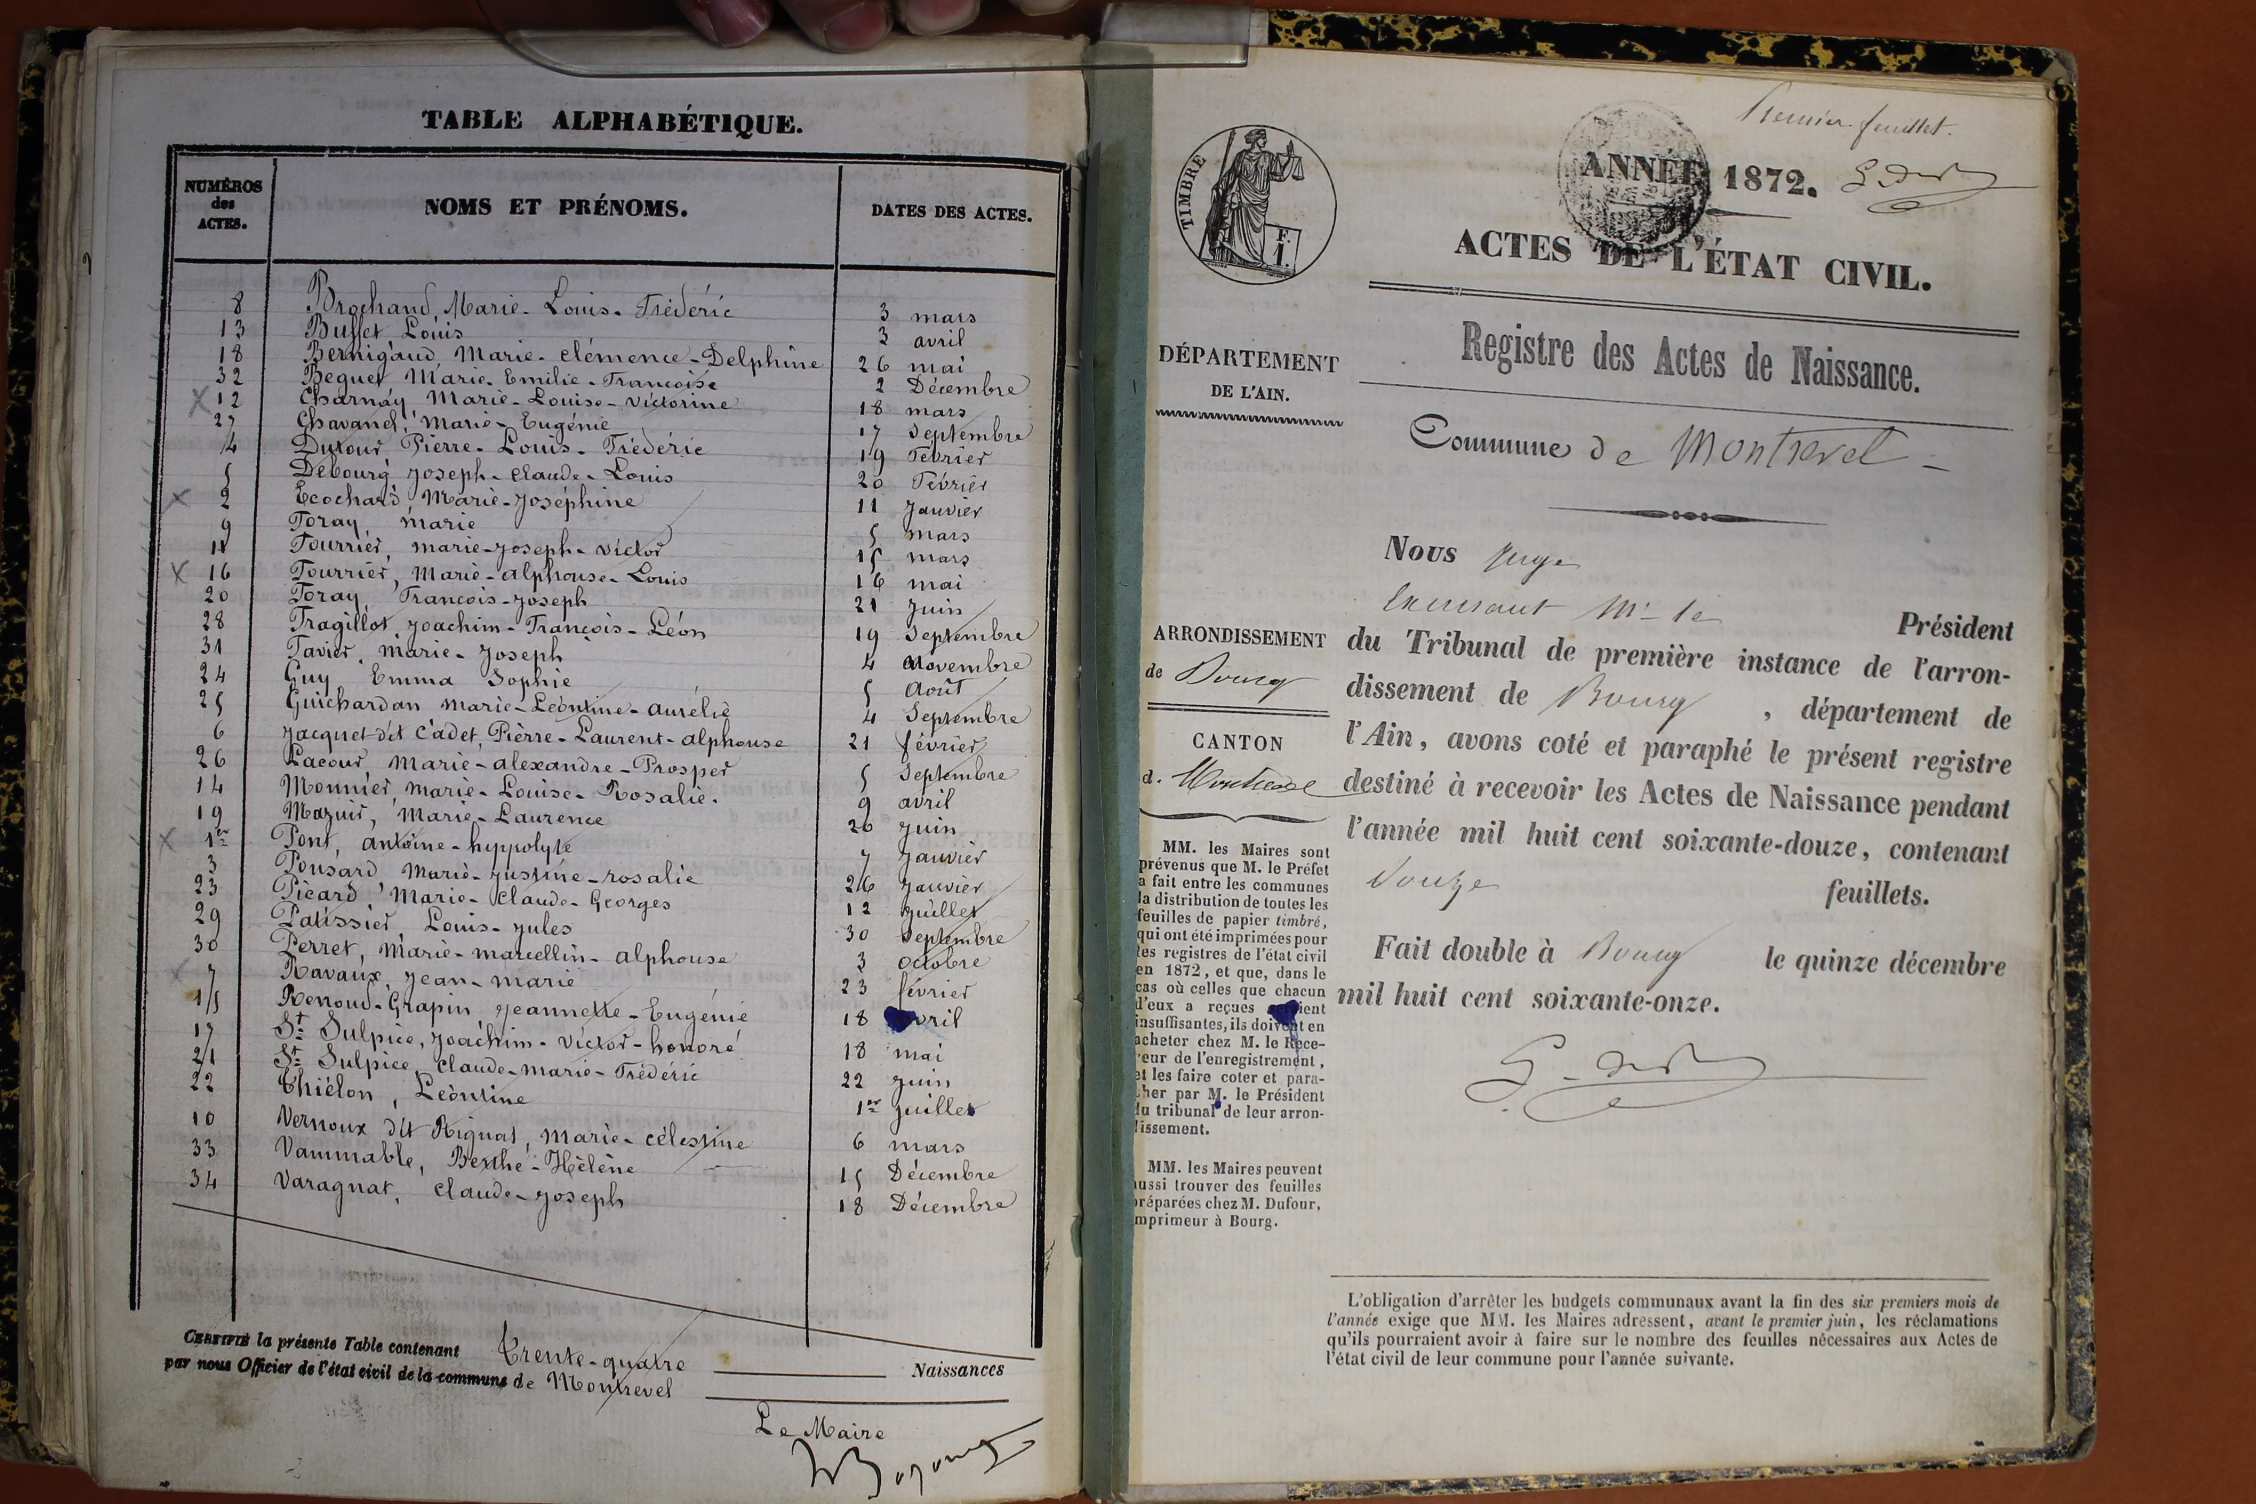 TABLE ALPHABÉTIQUE.
NUMÉROS des ACTES. NOMS ET PRÉNOMS. DATES DES ACTES.
8 Brochand, Marie-Louis-Frédéric 3 mars
13 Buffet Louis 3 avril
18 Bernigaud, Marie-clémence-Delphine 26 mai
32 Beguet Marie-Emilie-Françoise 2 Décembre
12 Charnay Marie-Louise-Victorine 18 mars
27 Chavanel, Marie-Eugénie 17 Septembre
4 Dutour, Pierre-Louis-Frédéric 19 Février
5 Debourg Joseph-Claude-Louis 20 Février
2 Ecochard Marie-Joséphine 11 Janvier
9 Foray, marie 5 mars
11 Fourrier, marie-joseph-victor 15 mars
16 Fourrier, Marie-alphonse-Louis 16 mai
20 Foray, François-Joseph 21 Juin
28 Fragillot, Joachim-François-Léon 19 Septembre
31 Favier, marie-Joseph 4 Novembre
24 Guy Emma Sophie 5 Août
25 Guichardan marie-Léontine-aurélie 4 Septembre
6 Jacquet dit Cadet, Pierre-Laurent-alphonse 21 février
26 Lacour Marie-alexandre-Prosper 5 Septembre
14 Monnier, marie-Louise-Rosalie. 9 avril
19 Mazuir, Marie-Laurence 20 Juin
1er Pont, antoine-hyppolyte 7 Janvier
3 Ponsard Marie-Justine-rosalie 26 Janvier
23 Picard, Marie-Claude-Georges 12 Juillet
29 Patissier, Louis-Jules 30 Septembre
30 Perret, Marie-marcellin-alphonse 3 octobre
7 Ravaux, Jean-marie 23 février
15 Renoud-Grapin, Jeannette-Eugénie 18 avril
17 St Sulpice, Joachim-Victor-honoré 18 mai
21 St Sulpice, Claude-marie-Frédéric 22 Juin
22 Thiélon, Léontine 1er Juillet
10 Vernoux dit Rignat, Marie-célestine 6 mars
33 Vammable, Berthe-Hélène 15 Décembre
34 Varagnat, Claude-Joseph 18 Décembre
CERTIFIÉ la présente Table contenant Trente-quatre Naissances
par nous Officier de l'état civil de la commune de Montrevel
Le Maire
Premier feuillet.
TIMBRE
F.
1.
ANNÉE 1872.
ACTES DE L'ÉTAT CIVIL.
Registre des Actes de Naissance.
DÉPARTEMENT
DE L'AIN.
Commune de Montrevel
Nous Juge
Président
ARRONDISSEMENT
de Bourg
CANTON
d. Montrevel
du Tribunal de première instance de l'arron-
dissement de Bourg, département de
l'Ain, avons coté et paraphé le présent registre
destiné à recevoir les Actes de Naissance pendant
l'année mil huit cent soixante-douze, contenant
douze feuillets.
Fait double à Bourg le quinze décembre
mil huit cent soixante-onze.
MM. les Maires sont
prévenus que M. le Préfet
a fait entre les communes
la distribution de toutes les
feuilles de papier timbré,
qui ont été imprimées pour
les registres de l'état civil
en 1872, et que, dans le
cas où celles que chacun
d'eux a reçues seraient
insuffisantes, ils doivent en
acheter chez M. le Rece-
veur de l'enregistrement,
et les faire coter et para-
pher par M. le Président
du tribunal de leur arron-
dissement.
MM. les Maires peuvent
aussi trouver des feuilles
préparées chez M. Dufour,
imprimeur à Bourg.
L'obligation d'arrêter les budgets communaux avant la fin des six premiers mois de
l'année exige que MM. les Maires adressent, avant le premier juin, les réclamations
qu'ils pourraient avoir à faire sur le nombre des feuilles nécessaires aux Actes de
l'état civil de leur commune pour l'année suivante.